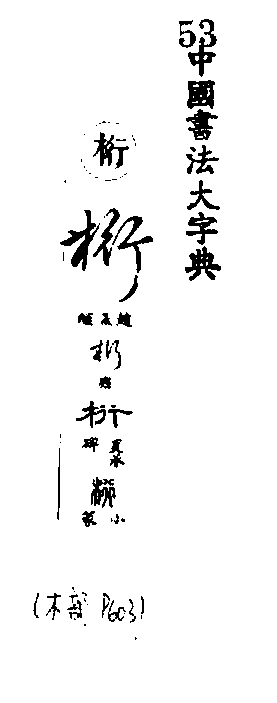 53
中國書法大字典
桁
桁
趙孟頫
桁
桁
夏承
碑
小
篆
(木部 P603)